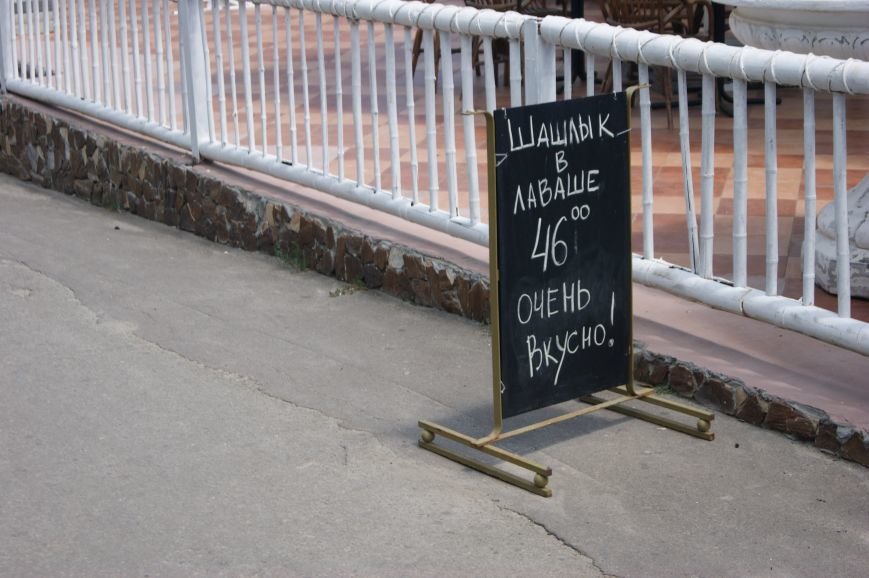 ШАШЛЫК
В
ЛАВАШЕ
46⁰⁰
ОЧЕНЬ
ВКУСНО!